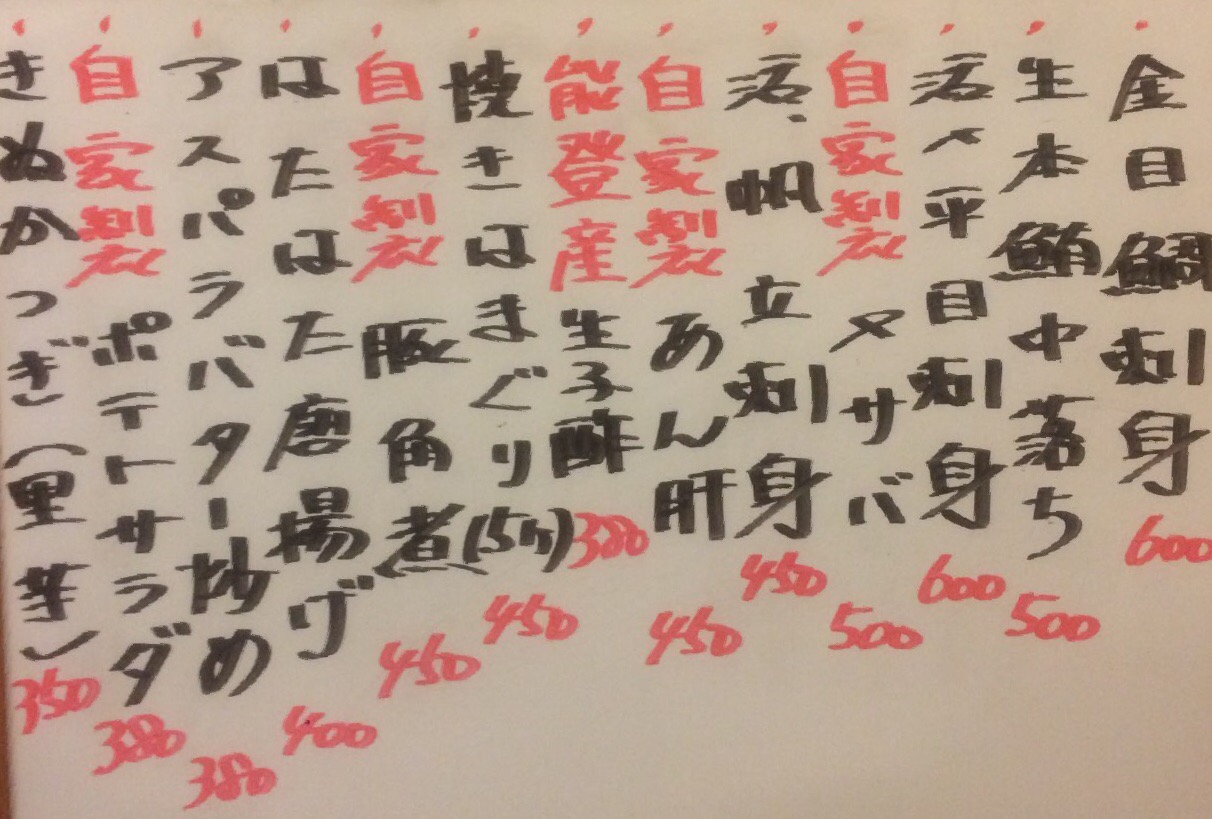 金目鯛刺身 600
生本鮪中落ち 500
活〆平目刺身 600
自家製〆サバ 500
活帆立刺身 450
自家製あん肝 450
能登産生子酢 380
焼きはまぐり(5ケ) 450
自家製豚角煮 450
はたはた唐揚げ 400
アスパラバター炒め 380
自家製ポテトサラダ 380
きぬかつぎ(里芋) 350